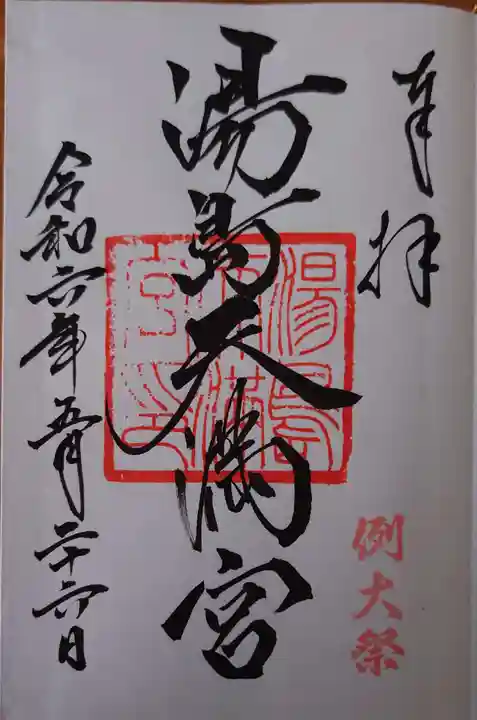 奉拝
例大祭
湯島天満宮
湯島天満宮印
令和六年五月二十六日